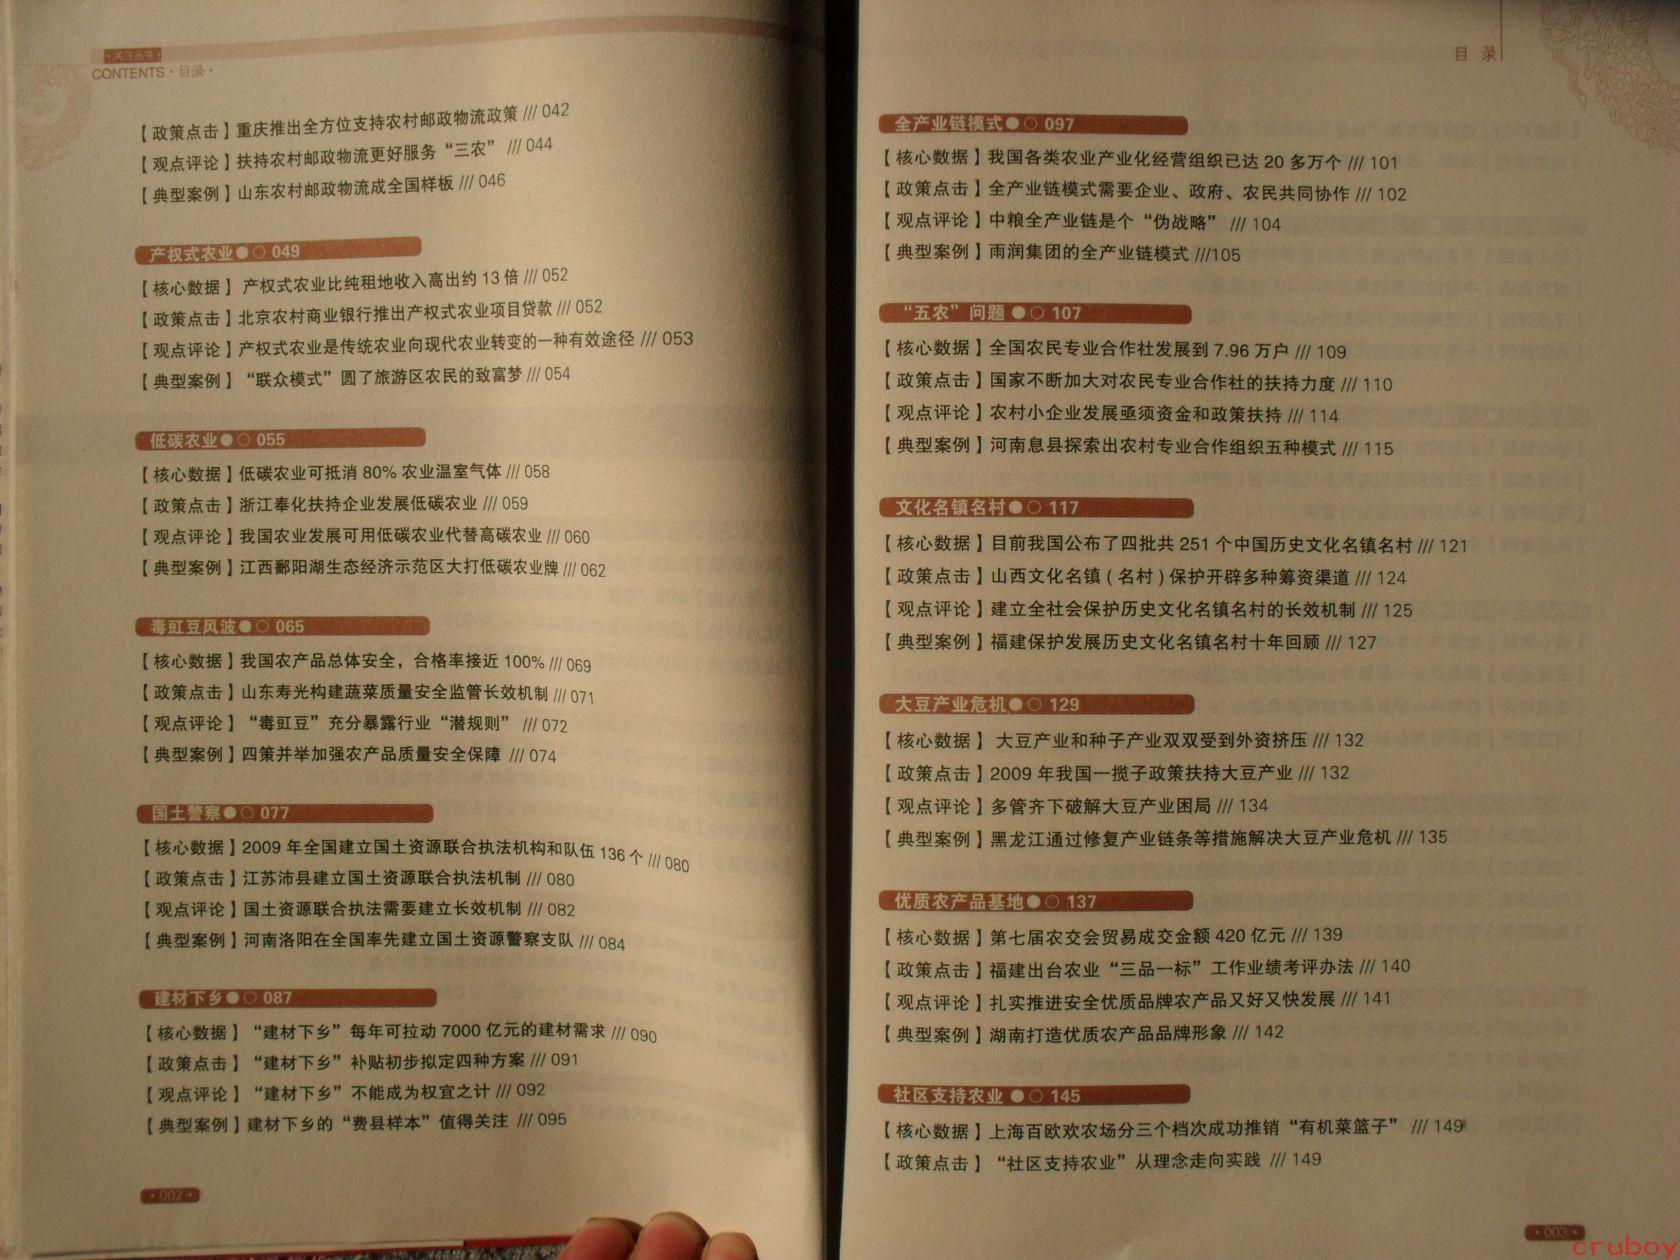 ·关注丛书·
CONTENTS·目录·
【政策点击】重庆推出全方位支持农村邮政物流政策 /// 042
【观点评论】扶持农村邮政物流更好服务“三农” /// 044
【典型案例】山东农村邮政物流成全国样板 /// 046
产权式农业●○ 049
【核心数据】产权式农业比纯租地收入高出约 13 倍 /// 052
【政策点击】北京农村商业银行推出产权式农业项目贷款 /// 052
【观点评论】产权式农业是传统农业向现代农业转变的一种有效途径 /// 053
【典型案例】“联众模式”圆了旅游区农民的致富梦 /// 054
低碳农业●○ 055
【核心数据】低碳农业可抵消 80% 农业温室气体 /// 058
【政策点击】浙江奉化扶持企业发展低碳农业 /// 059
【观点评论】我国农业发展可用低碳农业代替高碳农业 /// 060
【典型案例】江西鄱阳湖生态经济示范区大打低碳农业牌 /// 062
毒豇豆风波●○ 065
【核心数据】我国农产品总体安全，合格率接近 100% /// 069
【政策点击】山东寿光构建蔬菜质量安全监管长效机制 /// 071
【观点评论】“毒豇豆”充分暴露行业“潜规则” /// 072
【典型案例】四策并举加强农产品质量安全保障 /// 074
国土警察●○ 077
【核心数据】2009 年全国建立国土资源联合执法机构和队伍 136 个 /// 080
【政策点击】江苏沛县建立国土资源联合执法机制 /// 080
【观点评论】国土资源联合执法需要建立长效机制 /// 082
【典型案例】河南洛阳在全国率先建立国土资源警察支队 /// 084
建材下乡●○ 087
【核心数据】“建材下乡”每年可拉动 7000 亿元的建材需求 /// 090
【政策点击】“建材下乡”补贴初步拟定四种方案 /// 091
【观点评论】“建材下乡”不能成为权宜之计 /// 092
【典型案例】建材下乡的“费县样本”值得关注 /// 095
·002·
目 录
全产业链模式●○ 097
【核心数据】我国各类农业产业化经营组织已达 20 多万个 /// 101
【政策点击】全产业链模式需要企业、政府、农民共同协作 /// 102
【观点评论】中粮全产业链是个“伪战略” /// 104
【典型案例】雨润集团的全产业链模式 ///105
“五农”问题 ●○ 107
【核心数据】全国农民专业合作社发展到 7.96 万户 /// 109
【政策点击】国家不断加大对农民专业合作社的扶持力度 /// 110
【观点评论】农村小企业发展亟须资金和政策扶持 /// 114
【典型案例】河南息县探索出农村专业合作组织五种模式 /// 115
文化名镇名村●○ 117
【核心数据】目前我国公布了四批共 251 个中国历史文化名镇名村 /// 121
【政策点击】山西文化名镇(名村)保护开辟多种筹资渠道 /// 124
【观点评论】建立全社会保护历史文化名镇名村的长效机制 /// 125
【典型案例】福建保护发展历史文化名镇名村十年回顾 /// 127
大豆产业危机●○ 129
【核心数据】大豆产业和种子产业双双受到外资挤压 /// 132
【政策点击】2009 年我国一揽子政策扶持大豆产业 /// 132
【观点评论】多管齐下破解大豆产业困局 /// 134
【典型案例】黑龙江通过修复产业链条等措施解决大豆产业危机 /// 135
优质农产品基地●○ 137
【核心数据】第七届农交会贸易成交金额 420 亿元 /// 139
【政策点击】福建出台农业“三品一标”工作业绩考评办法 /// 140
【观点评论】扎实推进安全优质品牌农产品又好又快发展 /// 141
【典型案例】湖南打造优质农产品品牌形象 /// 142
社区支持农业 ●○ 145
【核心数据】上海百欧欢农场分三个档次成功推销“有机菜篮子” /// 149
【政策点击】“社区支持农业”从理念走向实践 /// 149
·003·
cruboy